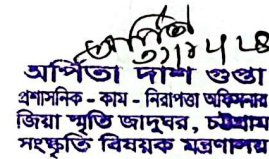 অর্পিতা
৩১।৮।২৪
অর্পিতা দাশ গুপ্তা
প্রশাসনিক - কাম - নিরাপত্তা অফিসার
জিয়া স্মৃতি জাদুঘর, চট্টগ্রাম
সংস্কৃতি বিষয়ক মন্ত্রণালয়